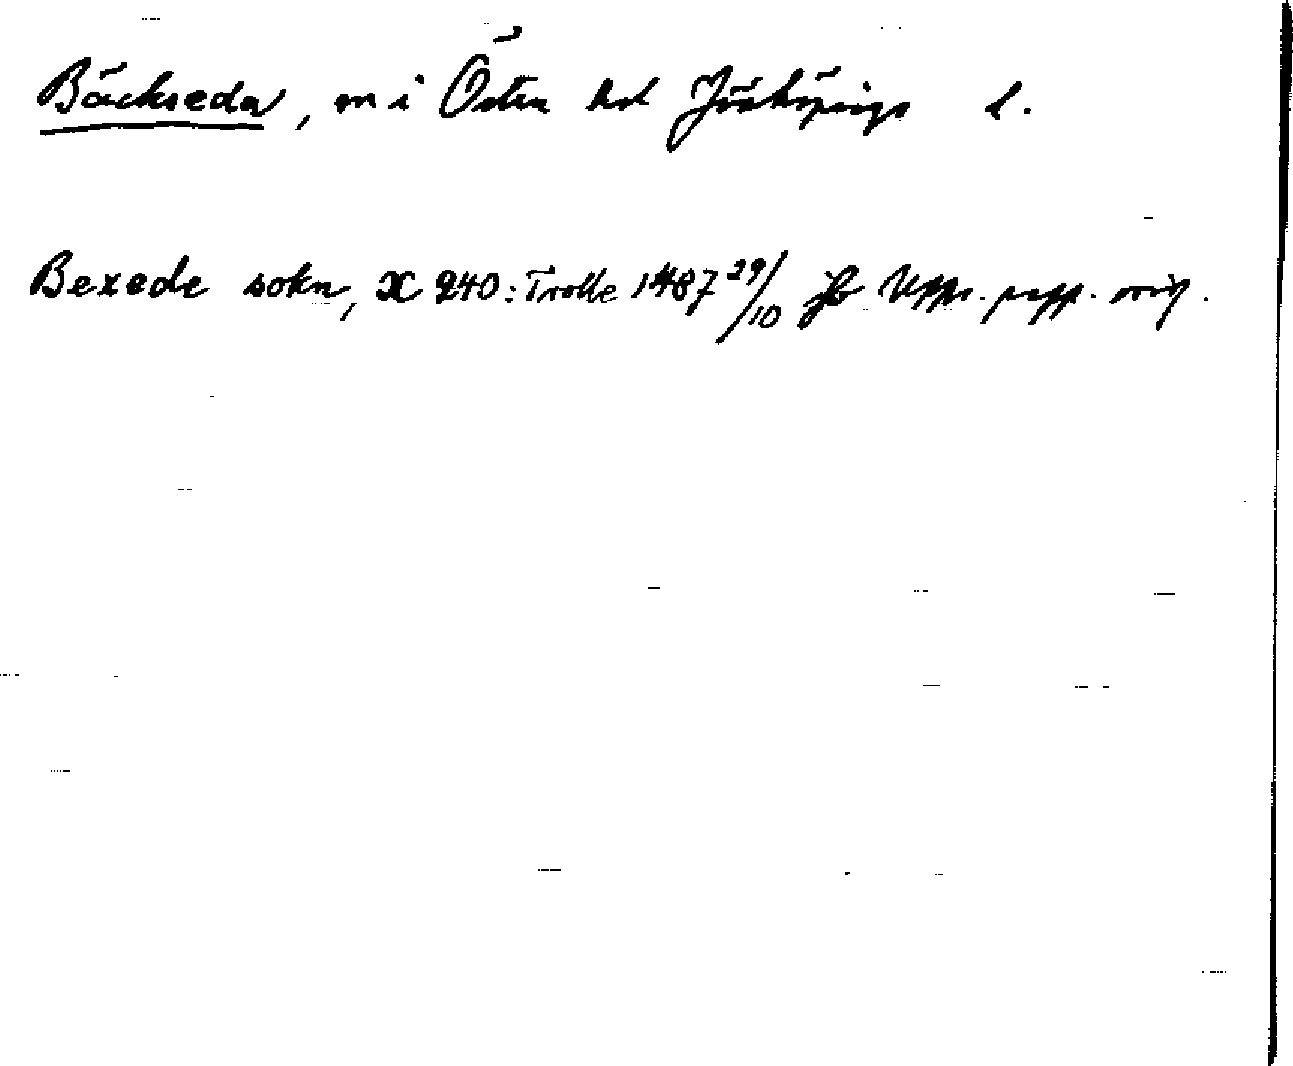 Bäckseda, sn i Östra hd Jönköpings l.
Bexede sokn, X 240: Trolle 1487 29/10 Jb Upps. papp. orig.